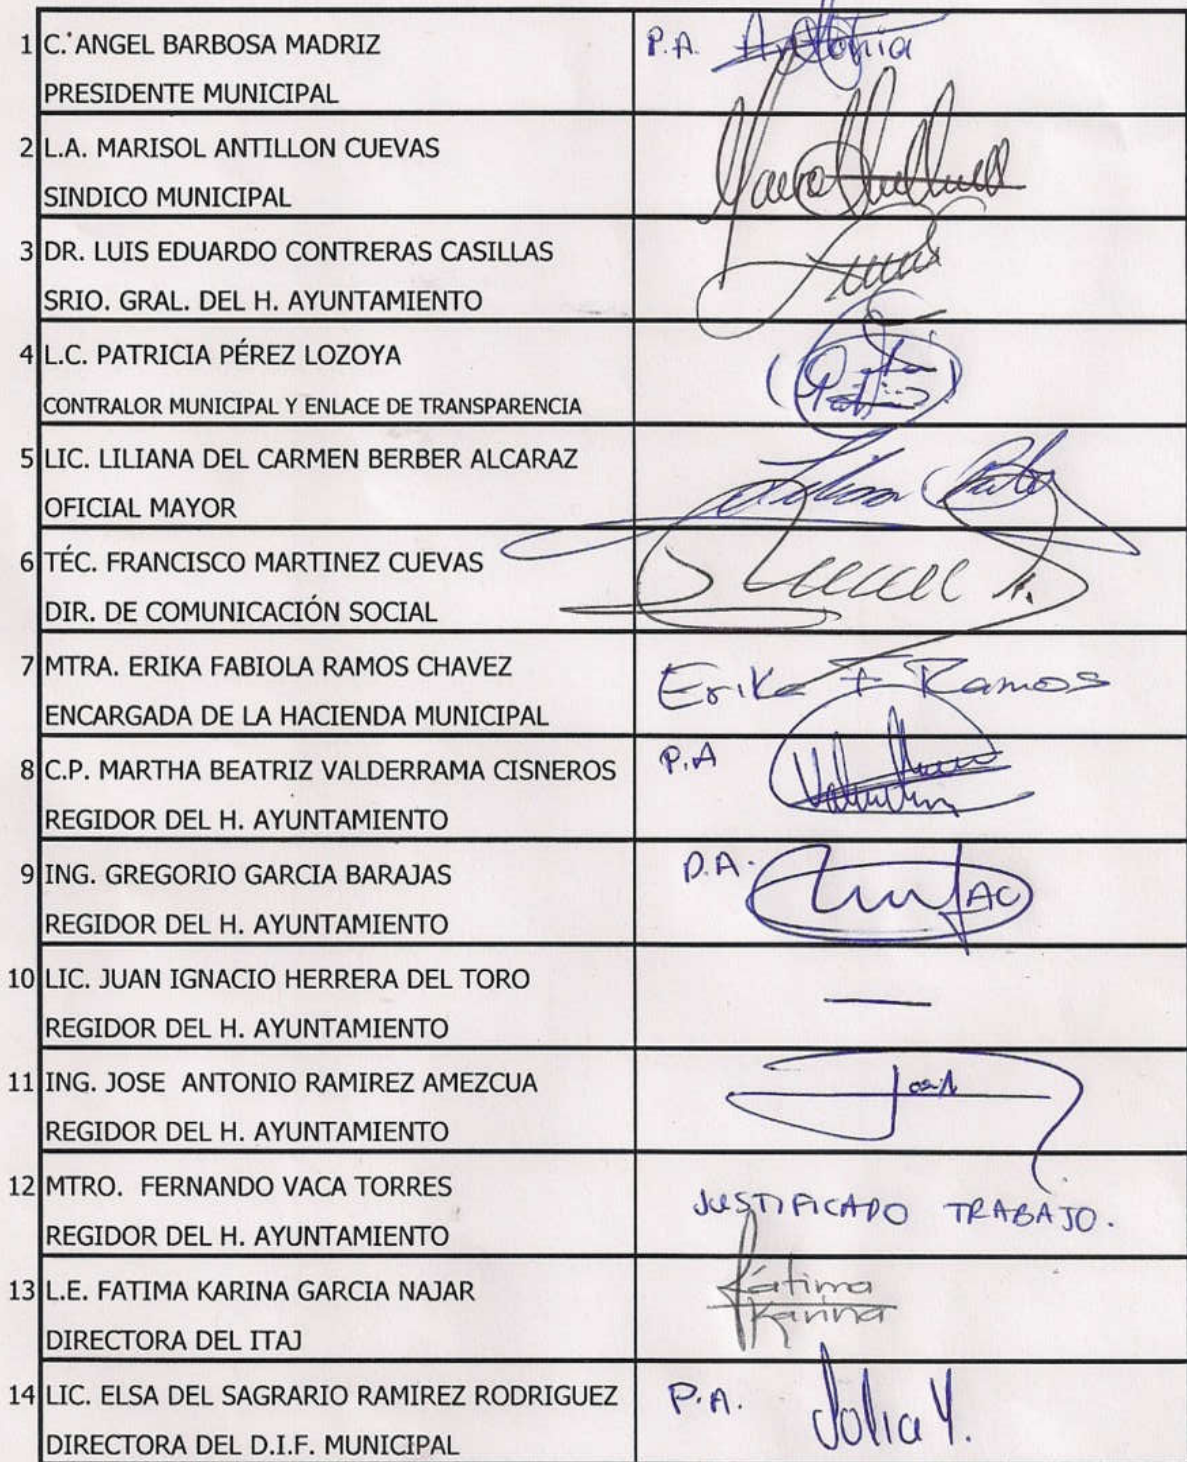 1 C. ANGEL BARBOSA MADRIZ P.A. Antonia
PRESIDENTE MUNICIPAL
2 L.A. MARISOL ANTILLON CUEVAS
SINDICO MUNICIPAL
3 DR. LUIS EDUARDO CONTRERAS CASILLAS
SRIO. GRAL. DEL H. AYUNTAMIENTO
4 L.C. PATRICIA PÉREZ LOZOYA
CONTRALOR MUNICIPAL Y ENLACE DE TRANSPARENCIA
5 LIC. LILIANA DEL CARMEN BERBER ALCARAZ
OFICIAL MAYOR
6 TÉC. FRANCISCO MARTINEZ CUEVAS
DIR. DE COMUNICACIÓN SOCIAL
7 MTRA. ERIKA FABIOLA RAMOS CHAVEZ Erika F Ramos
ENCARGADA DE LA HACIENDA MUNICIPAL
8 C.P. MARTHA BEATRIZ VALDERRAMA CISNEROS P.A
REGIDOR DEL H. AYUNTAMIENTO
9 ING. GREGORIO GARCIA BARAJAS P.A.
REGIDOR DEL H. AYUNTAMIENTO
10 LIC. JUAN IGNACIO HERRERA DEL TORO —
REGIDOR DEL H. AYUNTAMIENTO
11 ING. JOSE ANTONIO RAMIREZ AMEZCUA
REGIDOR DEL H. AYUNTAMIENTO
12 MTRO. FERNANDO VACA TORRES JUSTIFICADO TRABAJO.
REGIDOR DEL H. AYUNTAMIENTO
13 L.E. FATIMA KARINA GARCIA NAJAR Fátima Karina
DIRECTORA DEL ITAJ
14 LIC. ELSA DEL SAGRARIO RAMIREZ RODRIGUEZ P.A. Julia Y.
DIRECTORA DEL D.I.F. MUNICIPAL